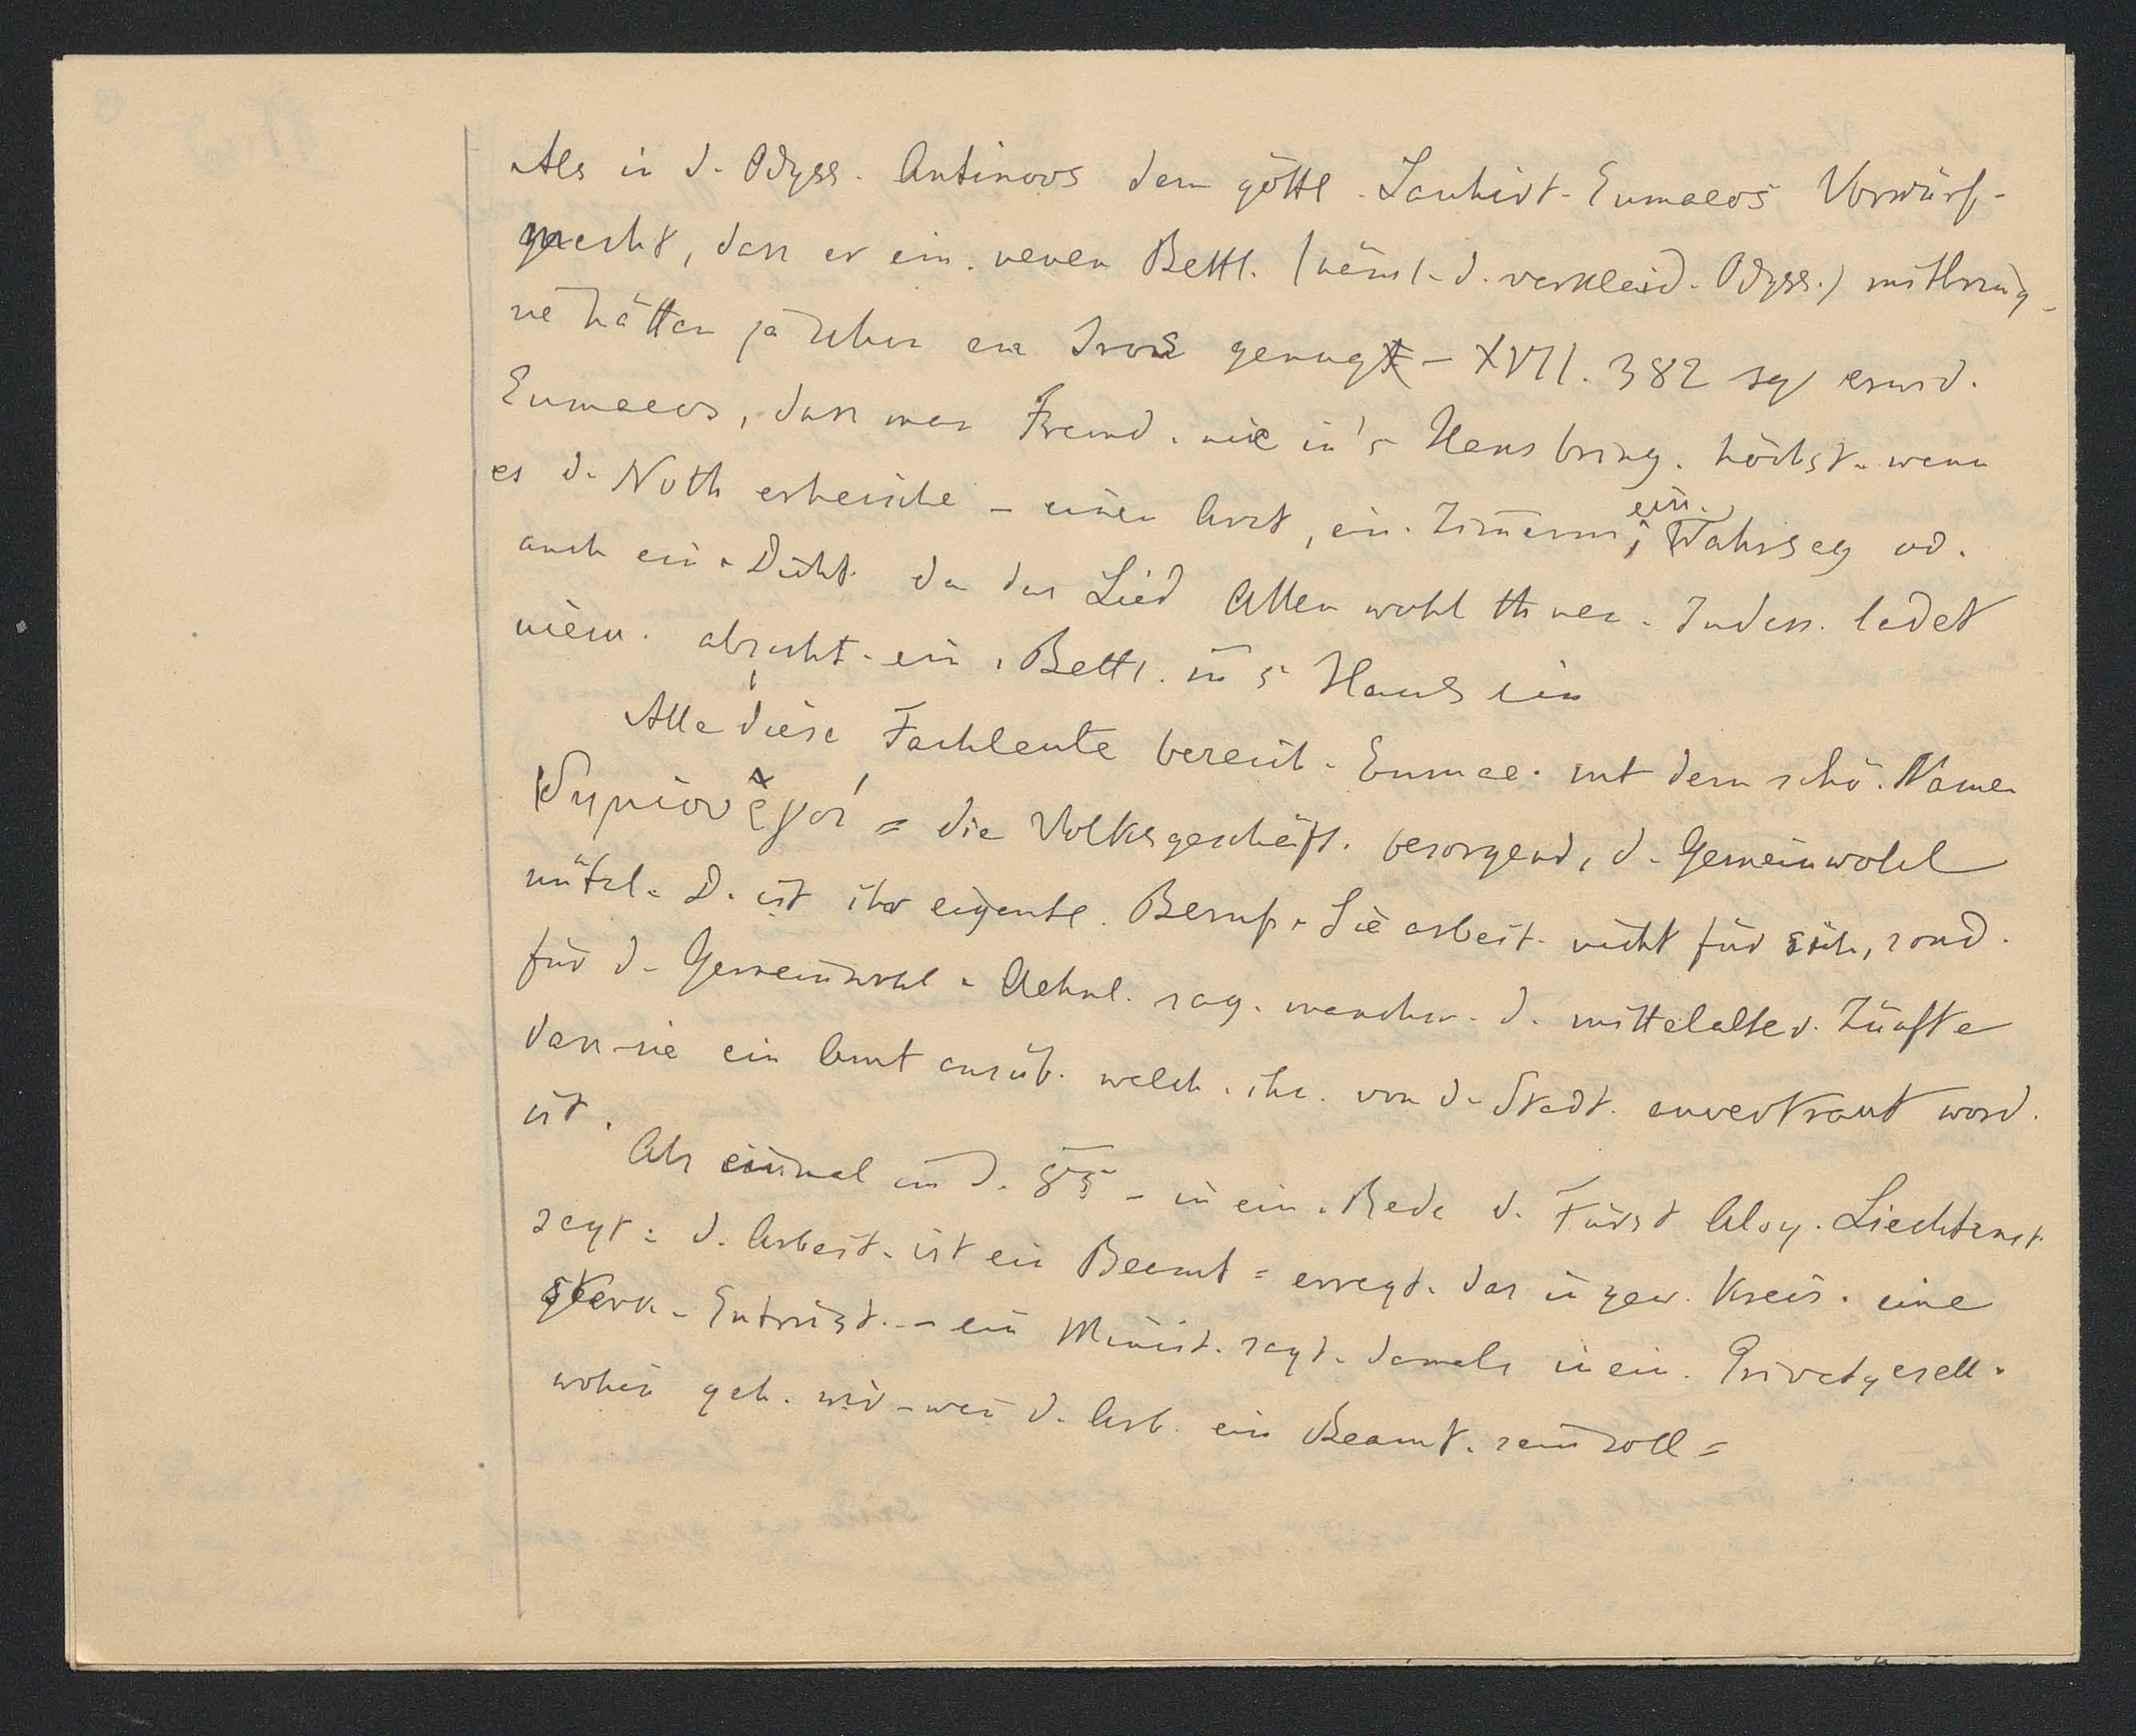 Als in d. Odyss. Antinoos dem göttl. Sauhirt. Eumaeos Vorwürf.
macht, dass er ein. neuen Bettl. (näml. d. verkleid. Odyss.) mitbring.
sie hätten ja schon an Iros genug – XVII. 382 sq erwid.
Eumaeos, dass man Fremd. nie in's Haus bring. höchst. wenn
es d. Noth erheische – einen Arzt, ein. Zim̄erm, ein. Wahrsag od.
auch ein. Dicht. da das Lied Allen wohl thue. Indess. ladet
niem. absicht. ein. Bettl. in's Haus ein
Alle diese Fachleute bereits Eumae. mit dem schö. Namen
δημιουργοί = die Volksgeschäft. besorgend, d. Gemeinwohl
nützl. D. ist ihr eigentl. Beruf. Sie arbeit. nicht für sich, sond.
für d. Gemeinwohl. Aehnl. sag. manchm. d. mittelalter. Zünfte
dass sie ein Amt ausüb. welch. ihn. von d. Stadt. anvertraut word.
ist.
Als einmal in d. 85 – in ein. Rede d. Fürst Aloy. Liechtenst.
sagt: d. Arbeit. ist ein Beamt = erregt. das in gew. Kreis. eine
stark. Entrüst. – ein Minist. sagt. damals in ein. Privatgesell.
wohin geh. wir – wen̄ d. Arb. ein Beamt. sein soll =